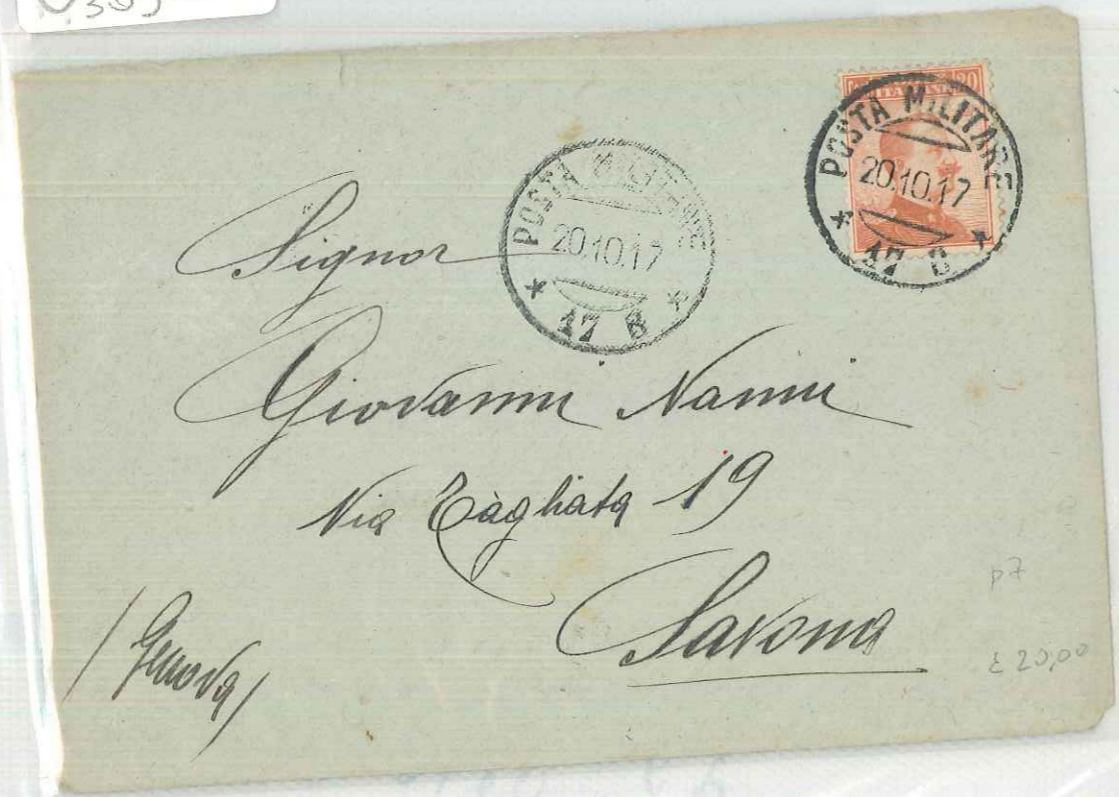 385
20
POSTA MILITARE
20.10.17
* 17 B *
POSTA MILITARE
20.10.17
* 17 B *
Signor
Giovanni Nanni
Via Tagliata 19
Savona
(Genova)
p7
£ 20,00